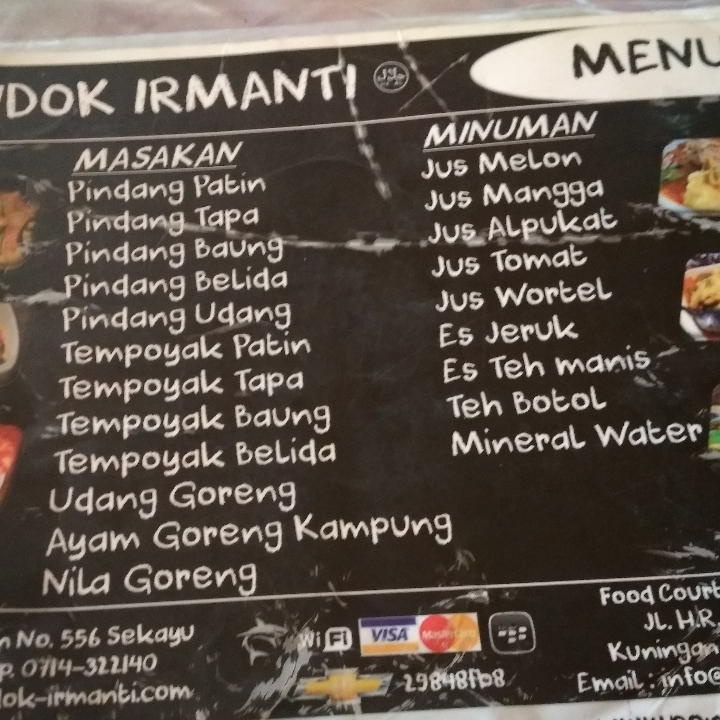 DOK IRMANTI
MENU
MASAKAN
Pindang Patin
Pindang Tapa
Pindang Baung
Pindang Belida
Pindang Udang
Tempoyak Patin
Tempoyak Tapa
Tempoyak Baung
Tempoyak Belida
Udang Goreng
Ayam Goreng Kampung
Nila Goreng
MINUMAN
Jus Melon
Jus Mangga
Jus Alpukat
Jus Tomat
Jus Wortel
Es Jeruk
Es Teh manis
Teh Botol
Mineral Water
n No. 556 Sekayu
p. 0714-322140
dok-irmanti.com
Wi Fi VISA MasterCard
29848fb8
Food Court
JL. H.R.
Kuningan
Email : info@